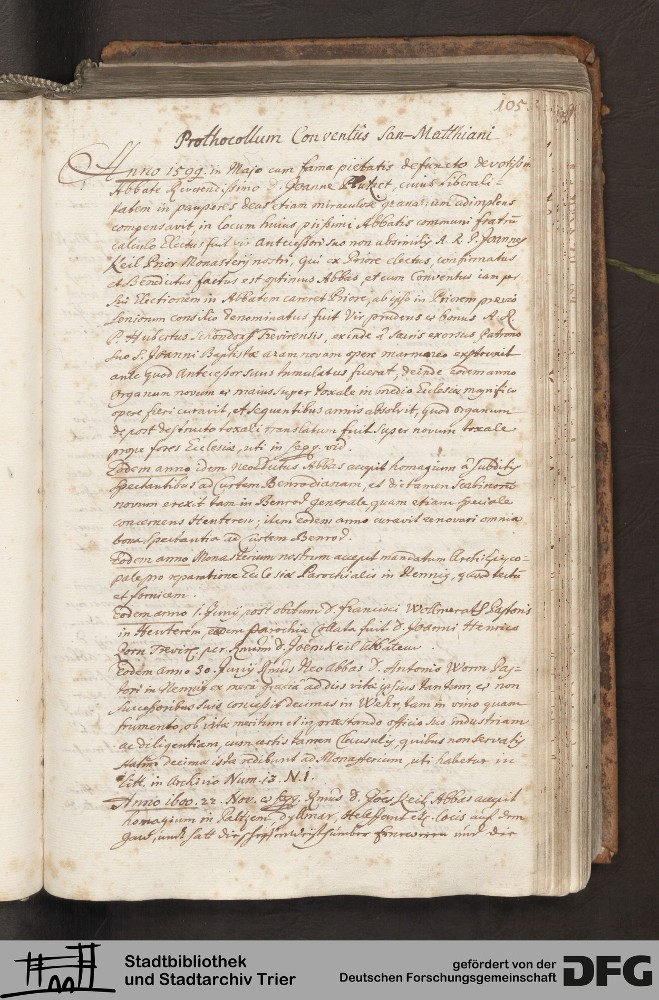 105
Prothocollum Conventûs San-Matthiani
Anno 1599. in Majo cum fama pietatis defuncto devotissimo
Abbate Reverendissimo Joanne cuius liberali-
tatem in pauperes Deus etiam miraculose granarium adimplens
compensavit, in locum huius piissimi Abbatis communi fratrũ
calculo Electus fuit vir Antecessori suo non absimilis A. R. P. Joannes
Keil Prior Monasterij nostri, qui ex Priore electus, confirmatus
et Benedictus factus est optimus Abbas, et cum Conventus iam per
sui Electionem in Abbatem careret Priore, ab ipso in Priorem previo
Seniorum consilio denominatus fuit Vir prudens et bonus A. R.
P. Hubertus Schöndorff Trevirensis, exinde à Sacris exorsus Patrono
suo S. Joanni Baptistæ aram novam opere marmoreo exstruxit
ante quod Antecessor suus tumulatus fuerat, deinde eodem anno
organum novum et maius super toxale in medio Ecclesiæ magnifico
opere fieri curavit, et sequentibus annis absolvit, quod organum
depost destructo toxali translatum fuit super novum toxale
prope fores Ecclesiæ, uti in seqq. vid.
Eodem anno idem Neoelectus Abbas accepit homagium à subditis
spectantibus ad Curtem Benrodianam, et dictamen Scabinorũ
novum erexit tam in Benrod generale, quam etiam speciale
concernens Henteren; item eodem anno curavit renovari omnia
bona spectantia ad curtem Benrod.
Eodem anno Monasterium nostrum accepit mandatum Archi-Episco-
pale, pro reparatione Ecclesiæ Parochialis in Nennig, quoad tectũ
et fornicem.
Eodem anno 1. Junij post obitum D. Francisci Wollmerath Pastoris
in Henterem eadem Parochia Collata fuit D. Joanni Henrico
Horn Trevirẽ. per Rmum D. Joẽm Keil Abbatem.
Eodem anno 30. Junij Rmus Neo Abbas D. Antonio Worm Pas-
tori in ex mera gratia ad dies vitæ ipsius tantum, et non
Successoribus suis concessit decimas in Wehr, tam in vino quam
frumento, ob vitæ meritum et in præstando officio suo industriam
ac diligentiam, cum certis tamen Clausulis, quibus non servatis
statim decima ista redibunt ad Monasterium, uti habetur in
litt. in Archivio Num. 13. N. 1.
Anno 1600. 22. Nov. et seqq. Rmus D. Joẽs Keil Abbas accepit
homagium in Paltzem, Dylmar, Helffant etc. locis auf dem
Gaw, undt hatt die und die
Stadtbibliothek
und Stadtarchiv Trier
gefördert von der
Deutschen Forschungsgemeinschaft
DFG